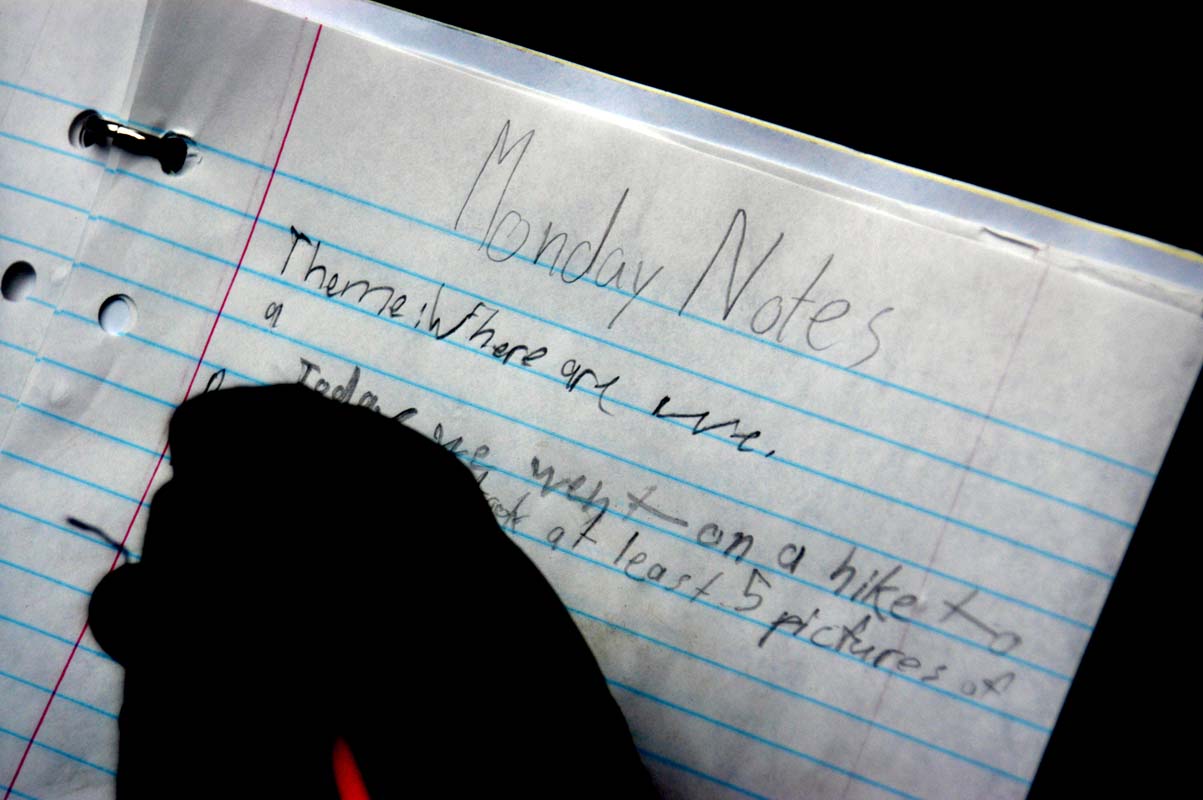 Monday Notes
Theme: Where are we.
a
Today we went on a hike to
took at least 5 pictures of